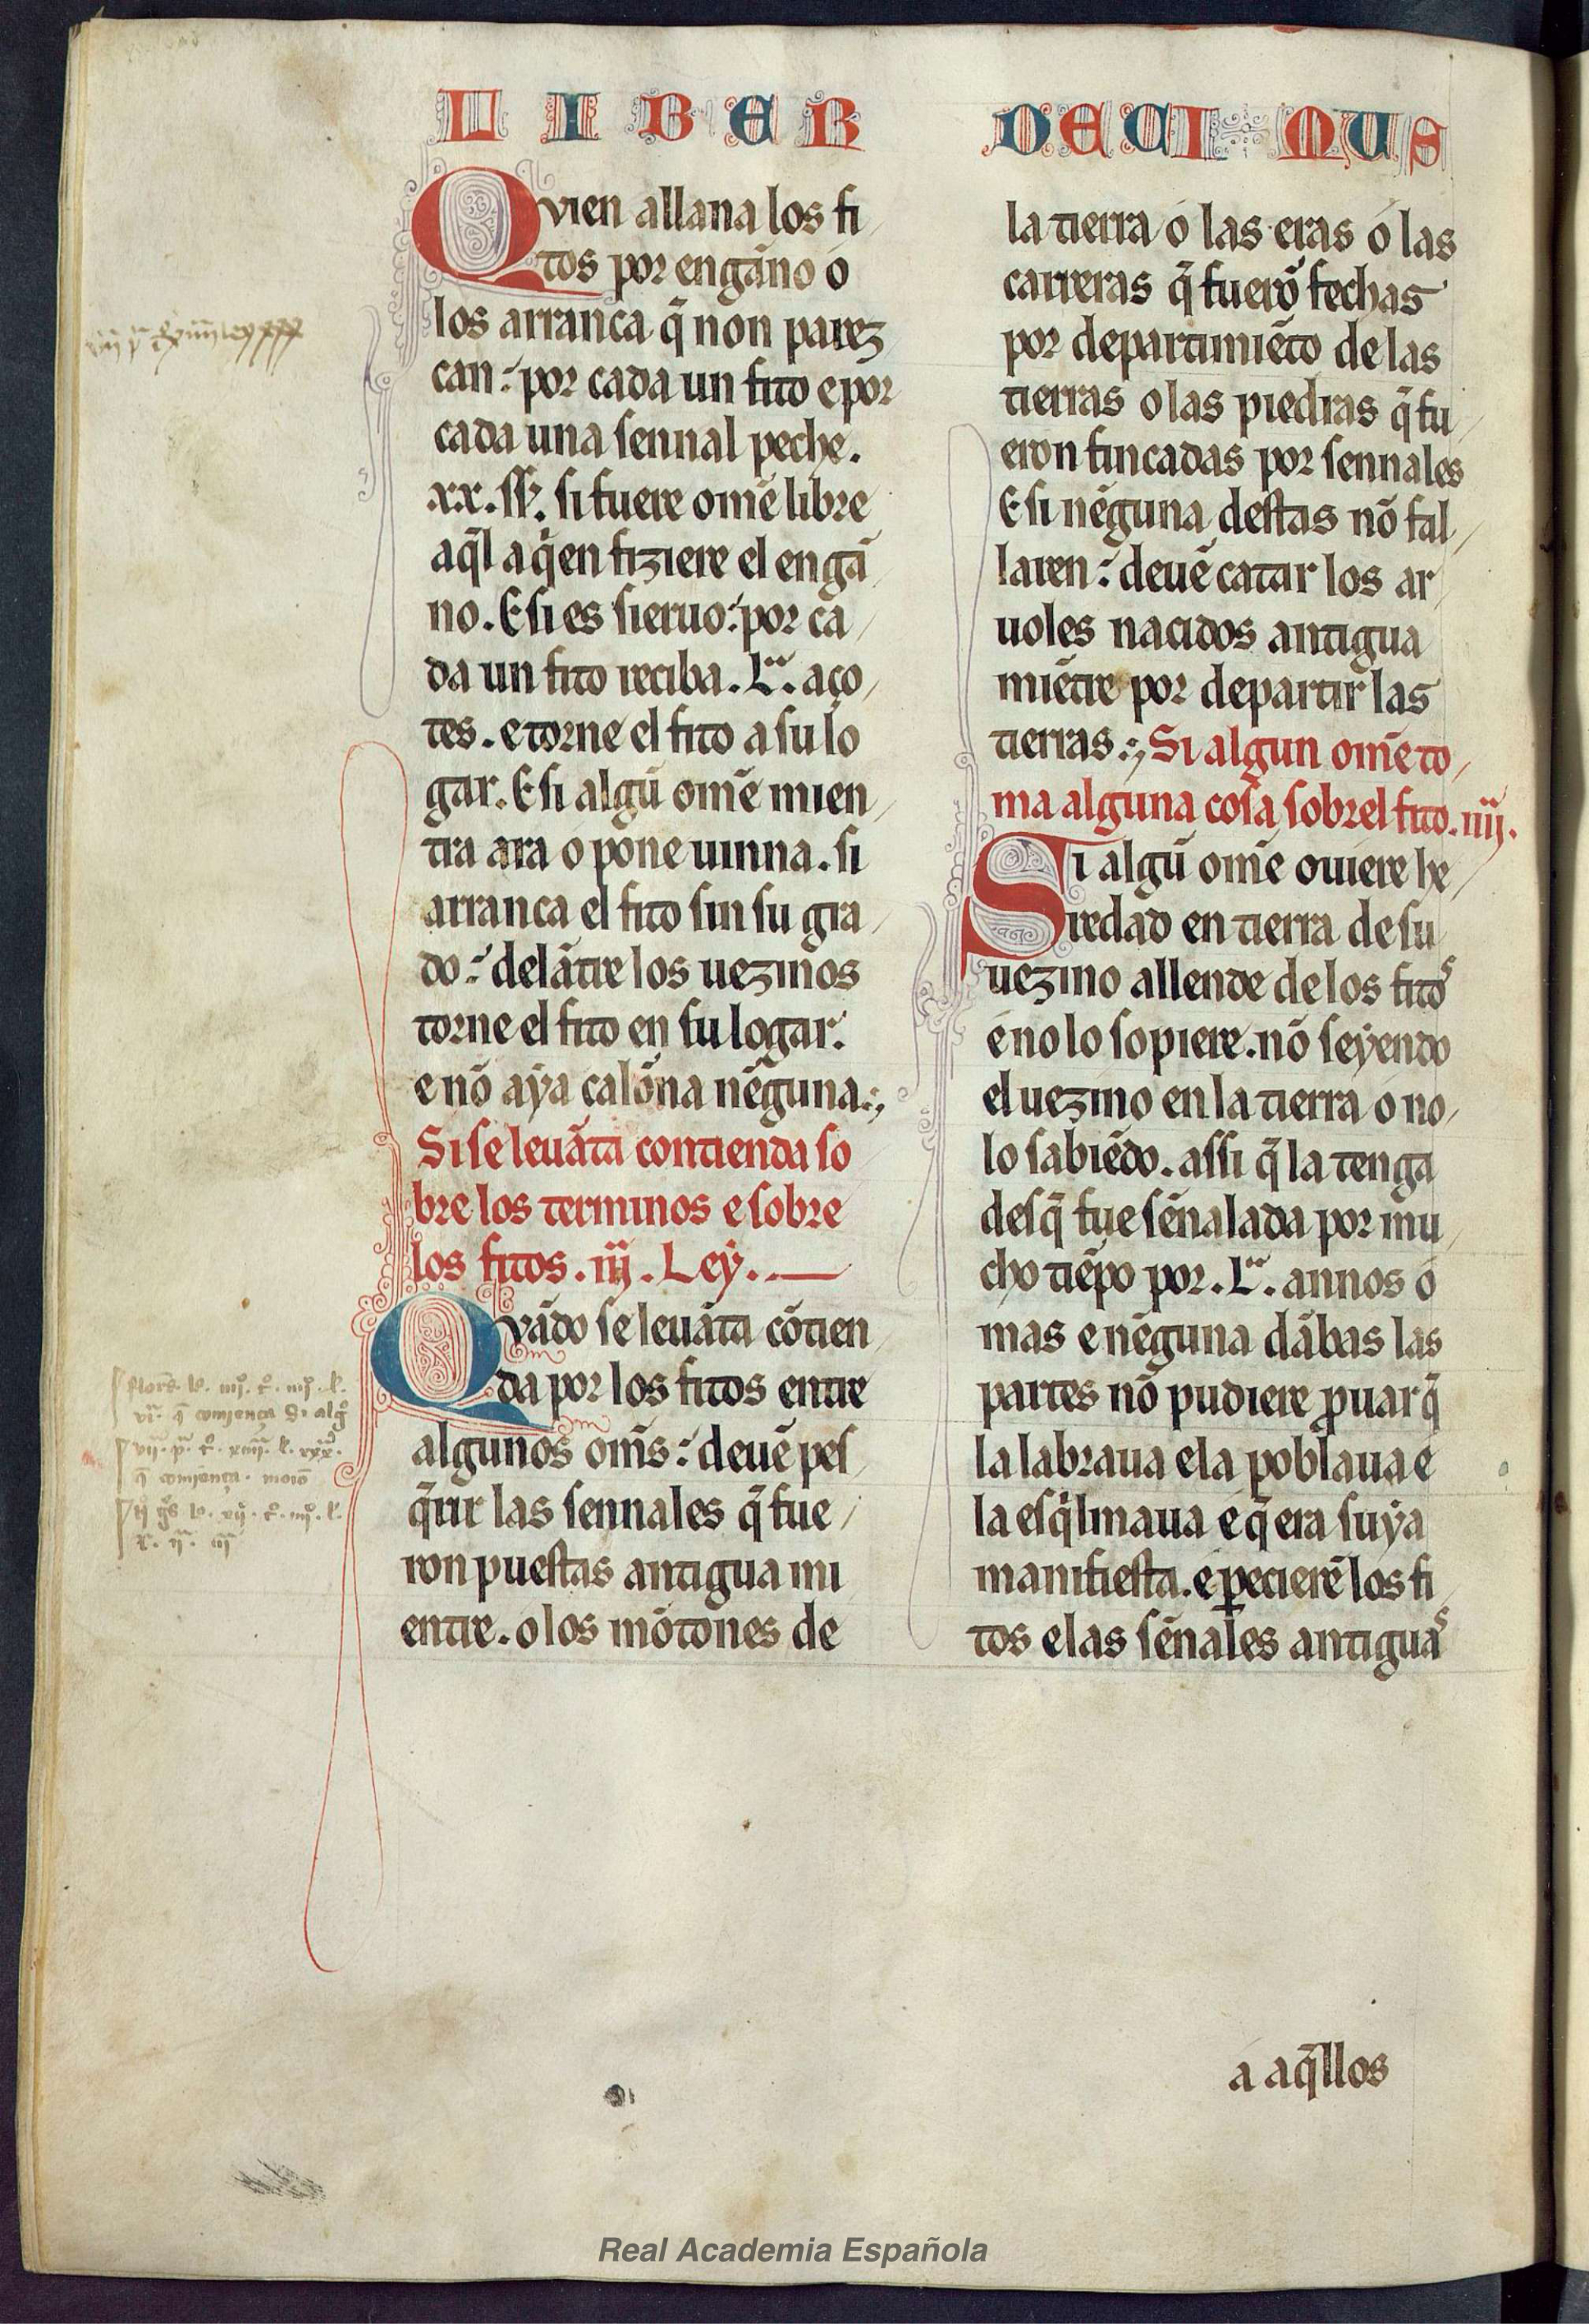 LIBER
Quien allana los fi
tos por engãno o
los arranca q̃ non parez
can: por cada un fito e por
cada una sennal peche.
xx. ss̃. si fuere om̃e libre
aq̃l a qͥen fiziere el engã
no. E si es sieruo: por ca
da un fito reciba. L.ᵃ aço
tes. e torne el fito a su lo
gar. E si algũ om̃e mien
tra ara o põne uinna. si
arranca el fito sin su gra
do: delãtre los uezinos
torne el fito en su logar.
e nõ aya calõna nẽguna.
Si se leuãta contienda so
bre los terminos e sobre
los fitos. iij. Ley.
Quãdo se leuãta cõtien
da por los fitos entre
algunos om̃s: deuẽ pes
q̃rir las sennales q̃ fue
ron puestas antigua mi
entre. o los mõtones de
DECIMUS
la tierra o las eras o las
carreras q̃ fuerõ fechas
por departimiẽto de las
tierras o las piedras q̃ fu
eron fincadas por sennales
E si nẽguna destas nõ fal
laren: deuẽ catar los ar
uoles nacidos antigua
miẽtre por departir las
tierras. Si algun om̃e to
ma alguna cosa sobrel fito. iiij.
Si algũ om̃e ouiere he
redad en tierra de su
uezino allende de los fitos
e no lo sopiere. nõ seyendo
el uezino en la tierra o no
lo sabiẽdo. assi q̃ la tenga
desq̃ fue sẽnalada por mu
cho tiẽpo por. L.ᵃ annos o
mas e nẽguna dãbas las
partes nõ pudiere ꝓuar q̃
la labraua e la poblaua e
la esqͥlmaua e q̃ era suya
manifiesta. e ꝑecierẽ los fi
tos e las sẽnales antiguas
a aq̃llos
Real Academia Española